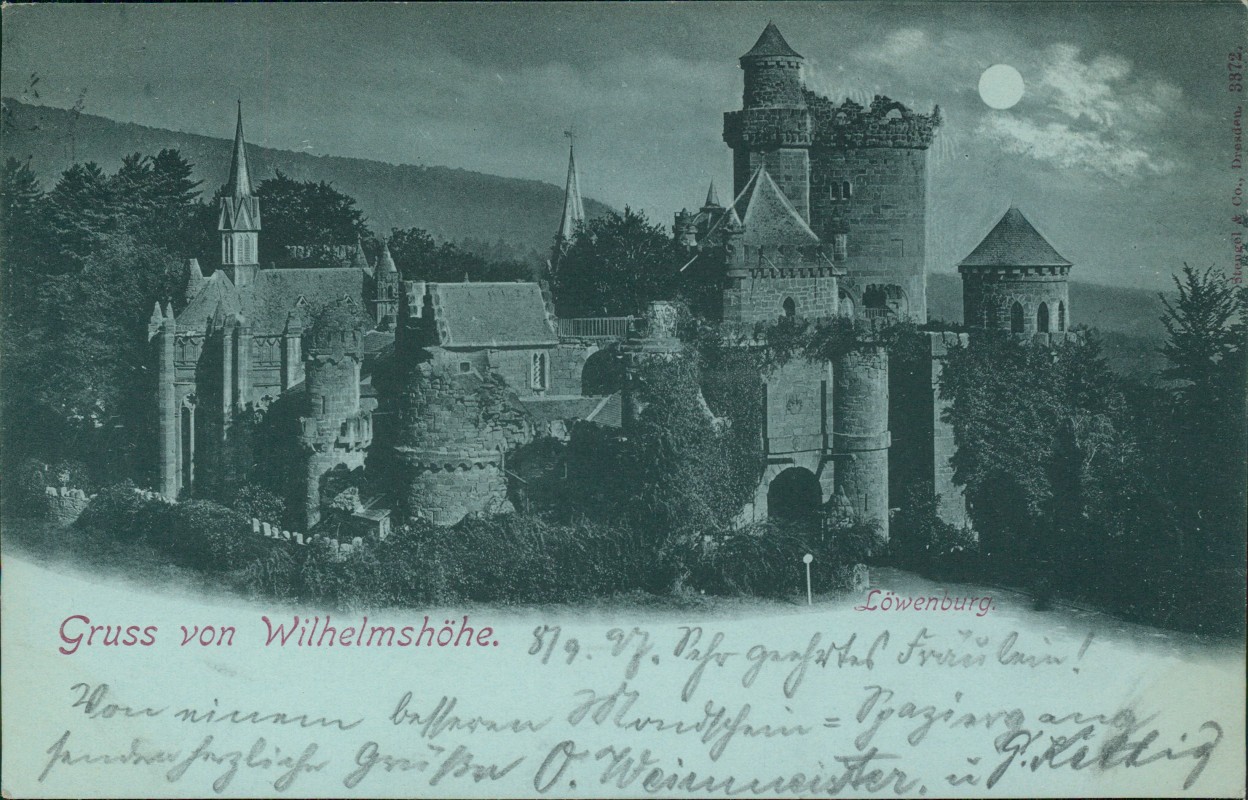 Stengel & Co., Dresden. 3372.
Löwenburg.
Gruss von Wilhelmshöhe. 8/9. 97. Sehr geehrtes Fräulein!
Von einem besseren Mondschein = Spaziergang
senden herzliche Grüße O. Weinmeister. u G. Kettig